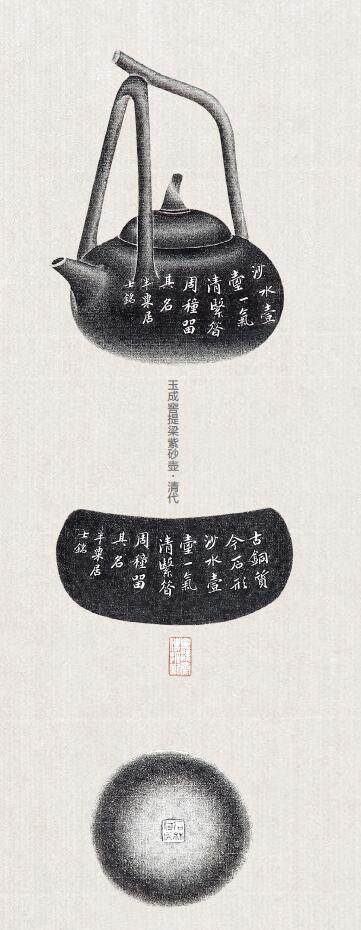 沙水壹
壹一氣
清緊
周穜留
其名
半粟居
士銘
玉成窰提梁紫砂壺·清代
古銅質
今石形
沙水壹
壹一氣
清緊
周穜留
其名
半粟居
士銘